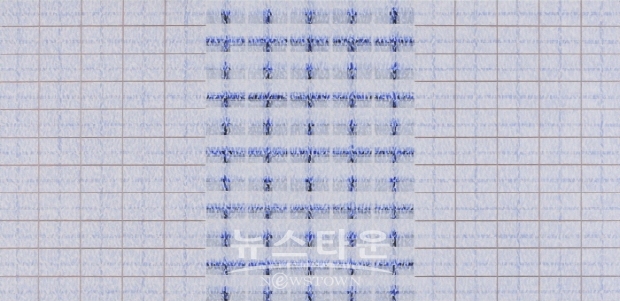 뉴스타운
ⓝewstown